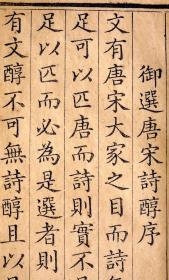 御選唐宋詩醇序
文有唐宋大家之目而詩
足可以匹唐而詩則實不
足以匹而必為是選者則
有文醇不可無詩醇且以